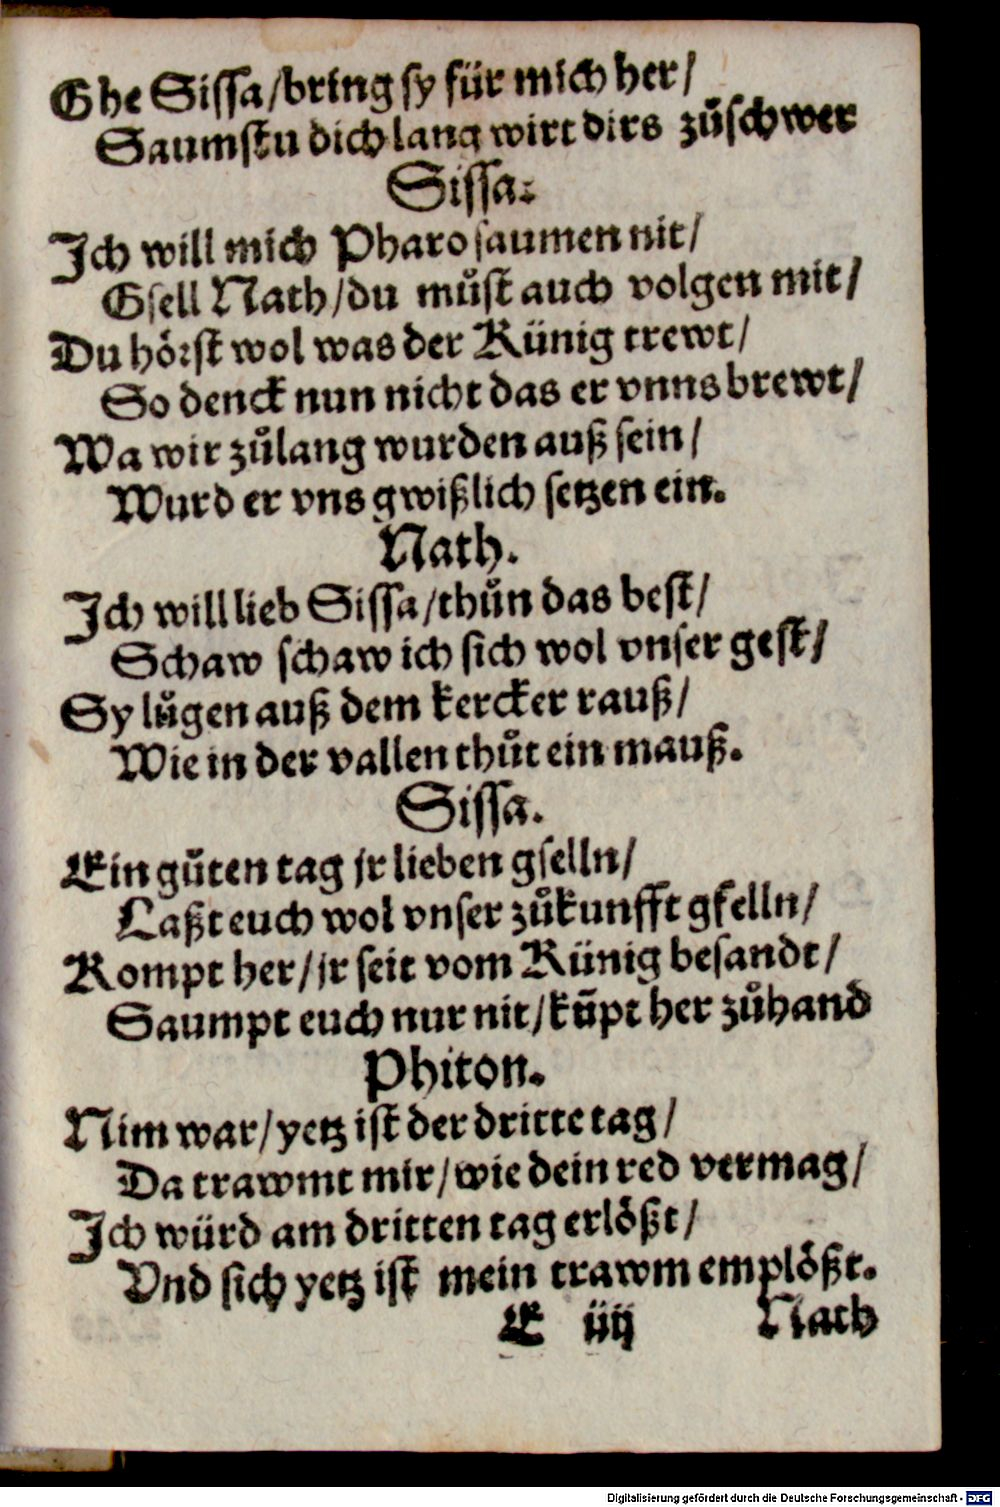 Ghe Sissa/bring sy für mich her/
Saumstu dich lang wirt dirs zůschwer
Sissa.
Jch will mich Pharo saumen nit/
Gsell Nath/du můst auch volgen mit/
Du hörst wol was der Künig trewt/
So denck nun nicht das er vnns brewt/
Wa wir zůlang wurden auß sein/
Wurd er vns gwißlich setzen ein.
Nath.
Jch will lieb Sissa/thůn das best/
Schaw schaw ich sich wol vnser gest/
Sy lůgen auß dem kercker rauß/
Wie in der vallen thůt ein mauß.
Sissa.
Ein gůten tag jr lieben gselln/
Laßt euch wol vnser zůkunfft gfelln/
Kompt her/jr seit vom Künig besandt/
Saumpt euch nur nit/kūpt her zůhand
Phiton.
Nim war/yetz ist der dritte tag/
Da trawmt mir/wie dein red vermag/
Jch würd am dritten tag erlößt/
Vnd sich yetz ist mein trawm emplößt.
E iiij Nath
Digitalisierung gefördert durch die Deutsche Forschungsgemeinschaft - DFG